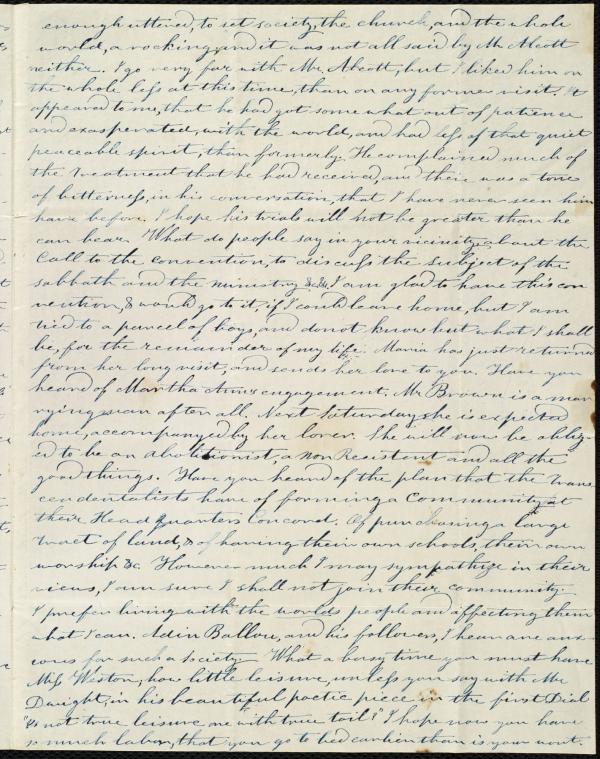 enough uttered, to set society, the church, and the whole
world, a rocking, and it was not all said by Mr. Alcott
neither. I go very far with Mr. Alcott, but I liked him on
the whole less at this time, than on any former visit. It
appeared to me, that he had got somewhat out of patience
and exasperated, with the world, and had less of that quiet
peaceable spirit, than formerly. He complained much of
the treatment that he had received, and there was a tone
of bitterness, in his conversation, that I have never seen him
have before. I hope his trials will not be greater than he
can bear. What do people say in your vicinity, about the
Call to the convention, to discuss the subject of the
sabbath and the ministry &c &c. I am glad to have this con
vention, & would go to it, if I could leave home, but I am
tied to a parcel of boys, and do not know but what I shall
be, for the remainder of my life. Maria has just returned
from her long visit, and sends her love to you. Have you
heard of Martha Ann's engagement. Mr Brown is a mar
rying man after all. Next Saturday she is expected
home, accompanyed by her lover. She will now be oblig-
ed to be an Abolitionist, a Non Resistent and all the
good things. Have you heard of the plan that the Trans
cendentalists have of forming a Community at
their Head Quarters Concord. Of purchasing a large
tract of land, & of having their own schools, their own
worship &c. However much I may sympathize in their
views, I am sure I shall not join their community.
I prefer living with the worlds people and affecting them
what I can. Adin Ballou, and his followers, I hear are anx-
ious for such a society. What a busy time you must have
Miss Weston, how little leisure, unless you say with Mr
Dwight, in his beautiful poetic piece in the first Dial
"Is not true leisure one with true toil?" I hope now you have
so much labor, that you go to bed earlier than is your wont.